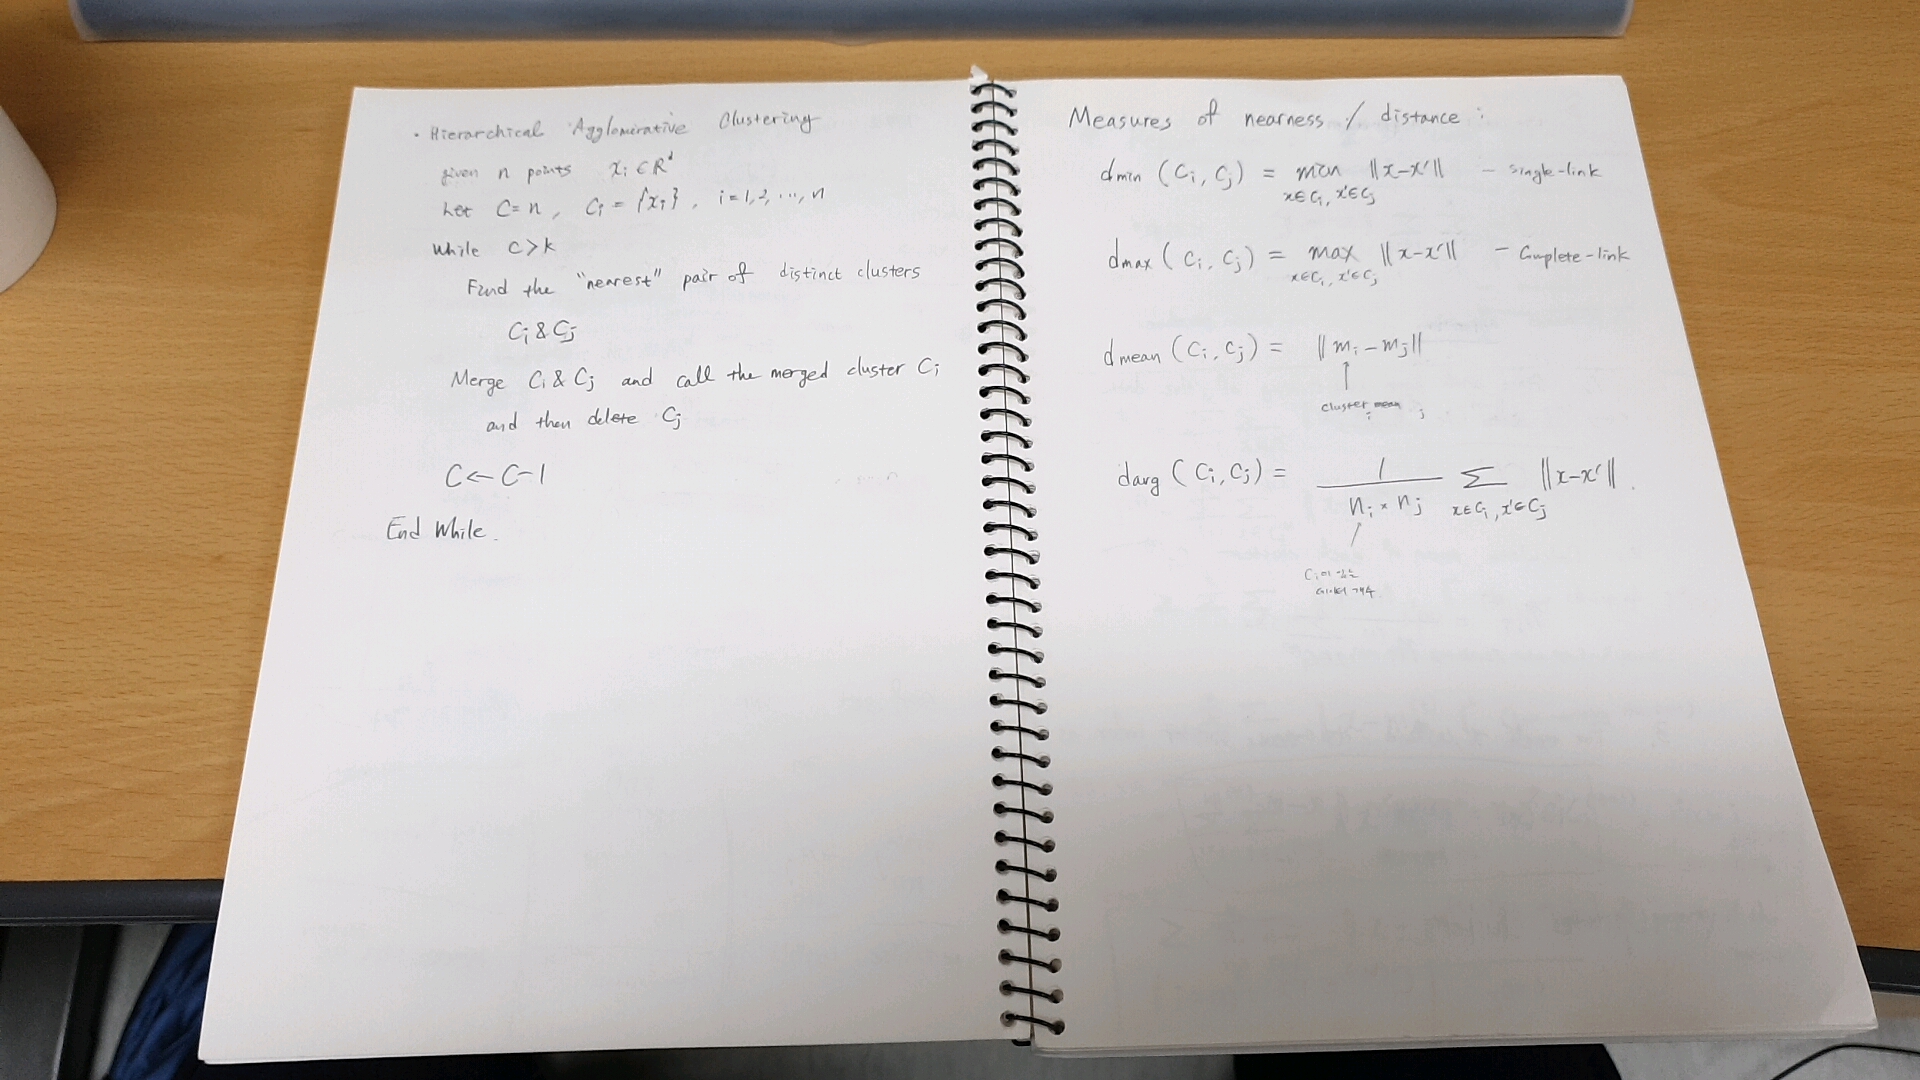 • Hierarchical Agglomerative Clustering
given n points x_i ⊂ R^d
Let C=n, C_i = {x_i}, i=1,2, ..., n
While C>k
Find the "nearest" pair of distinct clusters
C_i & C_j
Merge C_i & C_j and call the merged cluster C_i
and then delete C_j
C ← C-1
End While.
Measures of nearness / distance :
dmin (C_i, C_j) = min ||x-x'|| - single-link
x∈C_i, x'∈C_j
dmax (C_i, C_j) = max ||x-x'|| - Complete-link
x∈C_i, x'∈C_j
dmean (C_i, C_j) = ||m_i - m_j||
↑
cluster mean
i j
davg (C_i, C_j) = 1 / (n_i × n_j) Σ ||x-x'||.
x∈C_i, x'∈C_j
C_i에 있는
데이터 개수